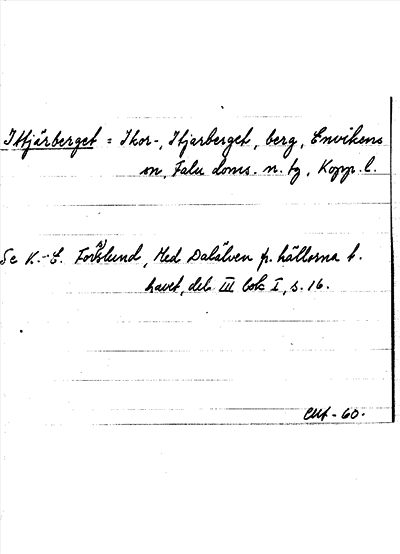 Ittjärberget = Ikor-, Itjarberget, berg, Envikens
sn, Falu doms. n. tg, Kopp. l.
Se K.-E. Forsslund, Med Dalälven fr. källorna t.
havet, del III bok I, s. 16.
-60.